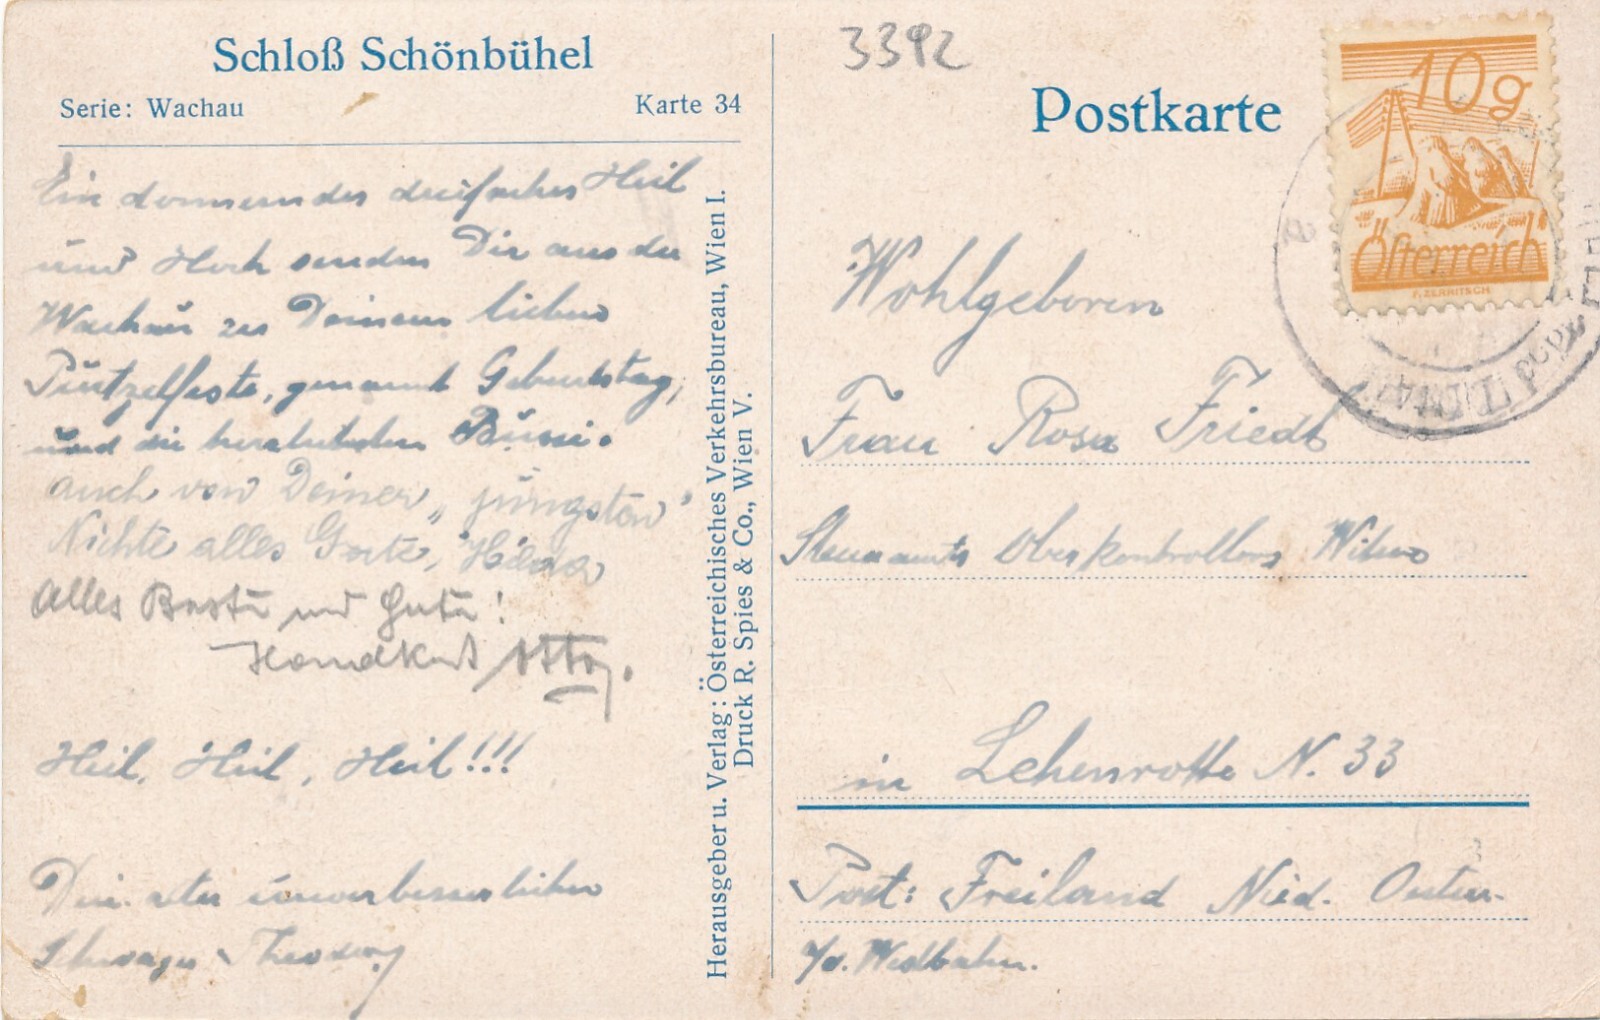 Schloß Schönbühel
Serie: Wachau
Karte 34
Ein donnerndes dreifaches Heil
und Hoch senden Dir aus der
Wachau zu Deinem lieben
Pürtzelfeste, genannt Geburtstag,
und die herzlichsten Bussi.
auch von Deiner „jüngsten"
Nichte alles Gute,
Alles Beste und Gute!
Otto.
Heil, Heil, Heil!!!
Dein alter unverbesserlicher
Schwager
Herausgeber u. Verlag: Österreichisches Verkehrsbureau, Wien I.
Druck R. Spies & Co., Wien V.
3392
Postkarte
10g
Österreich
F. ZERRITSCH
Wohlgeboren
Frau Rosa Friedl
Steueramts Oberkontrollors Witwe
in Lehenrotte N. 33
Post: Freiland Nied. Österr.
a/d. Westbahn.